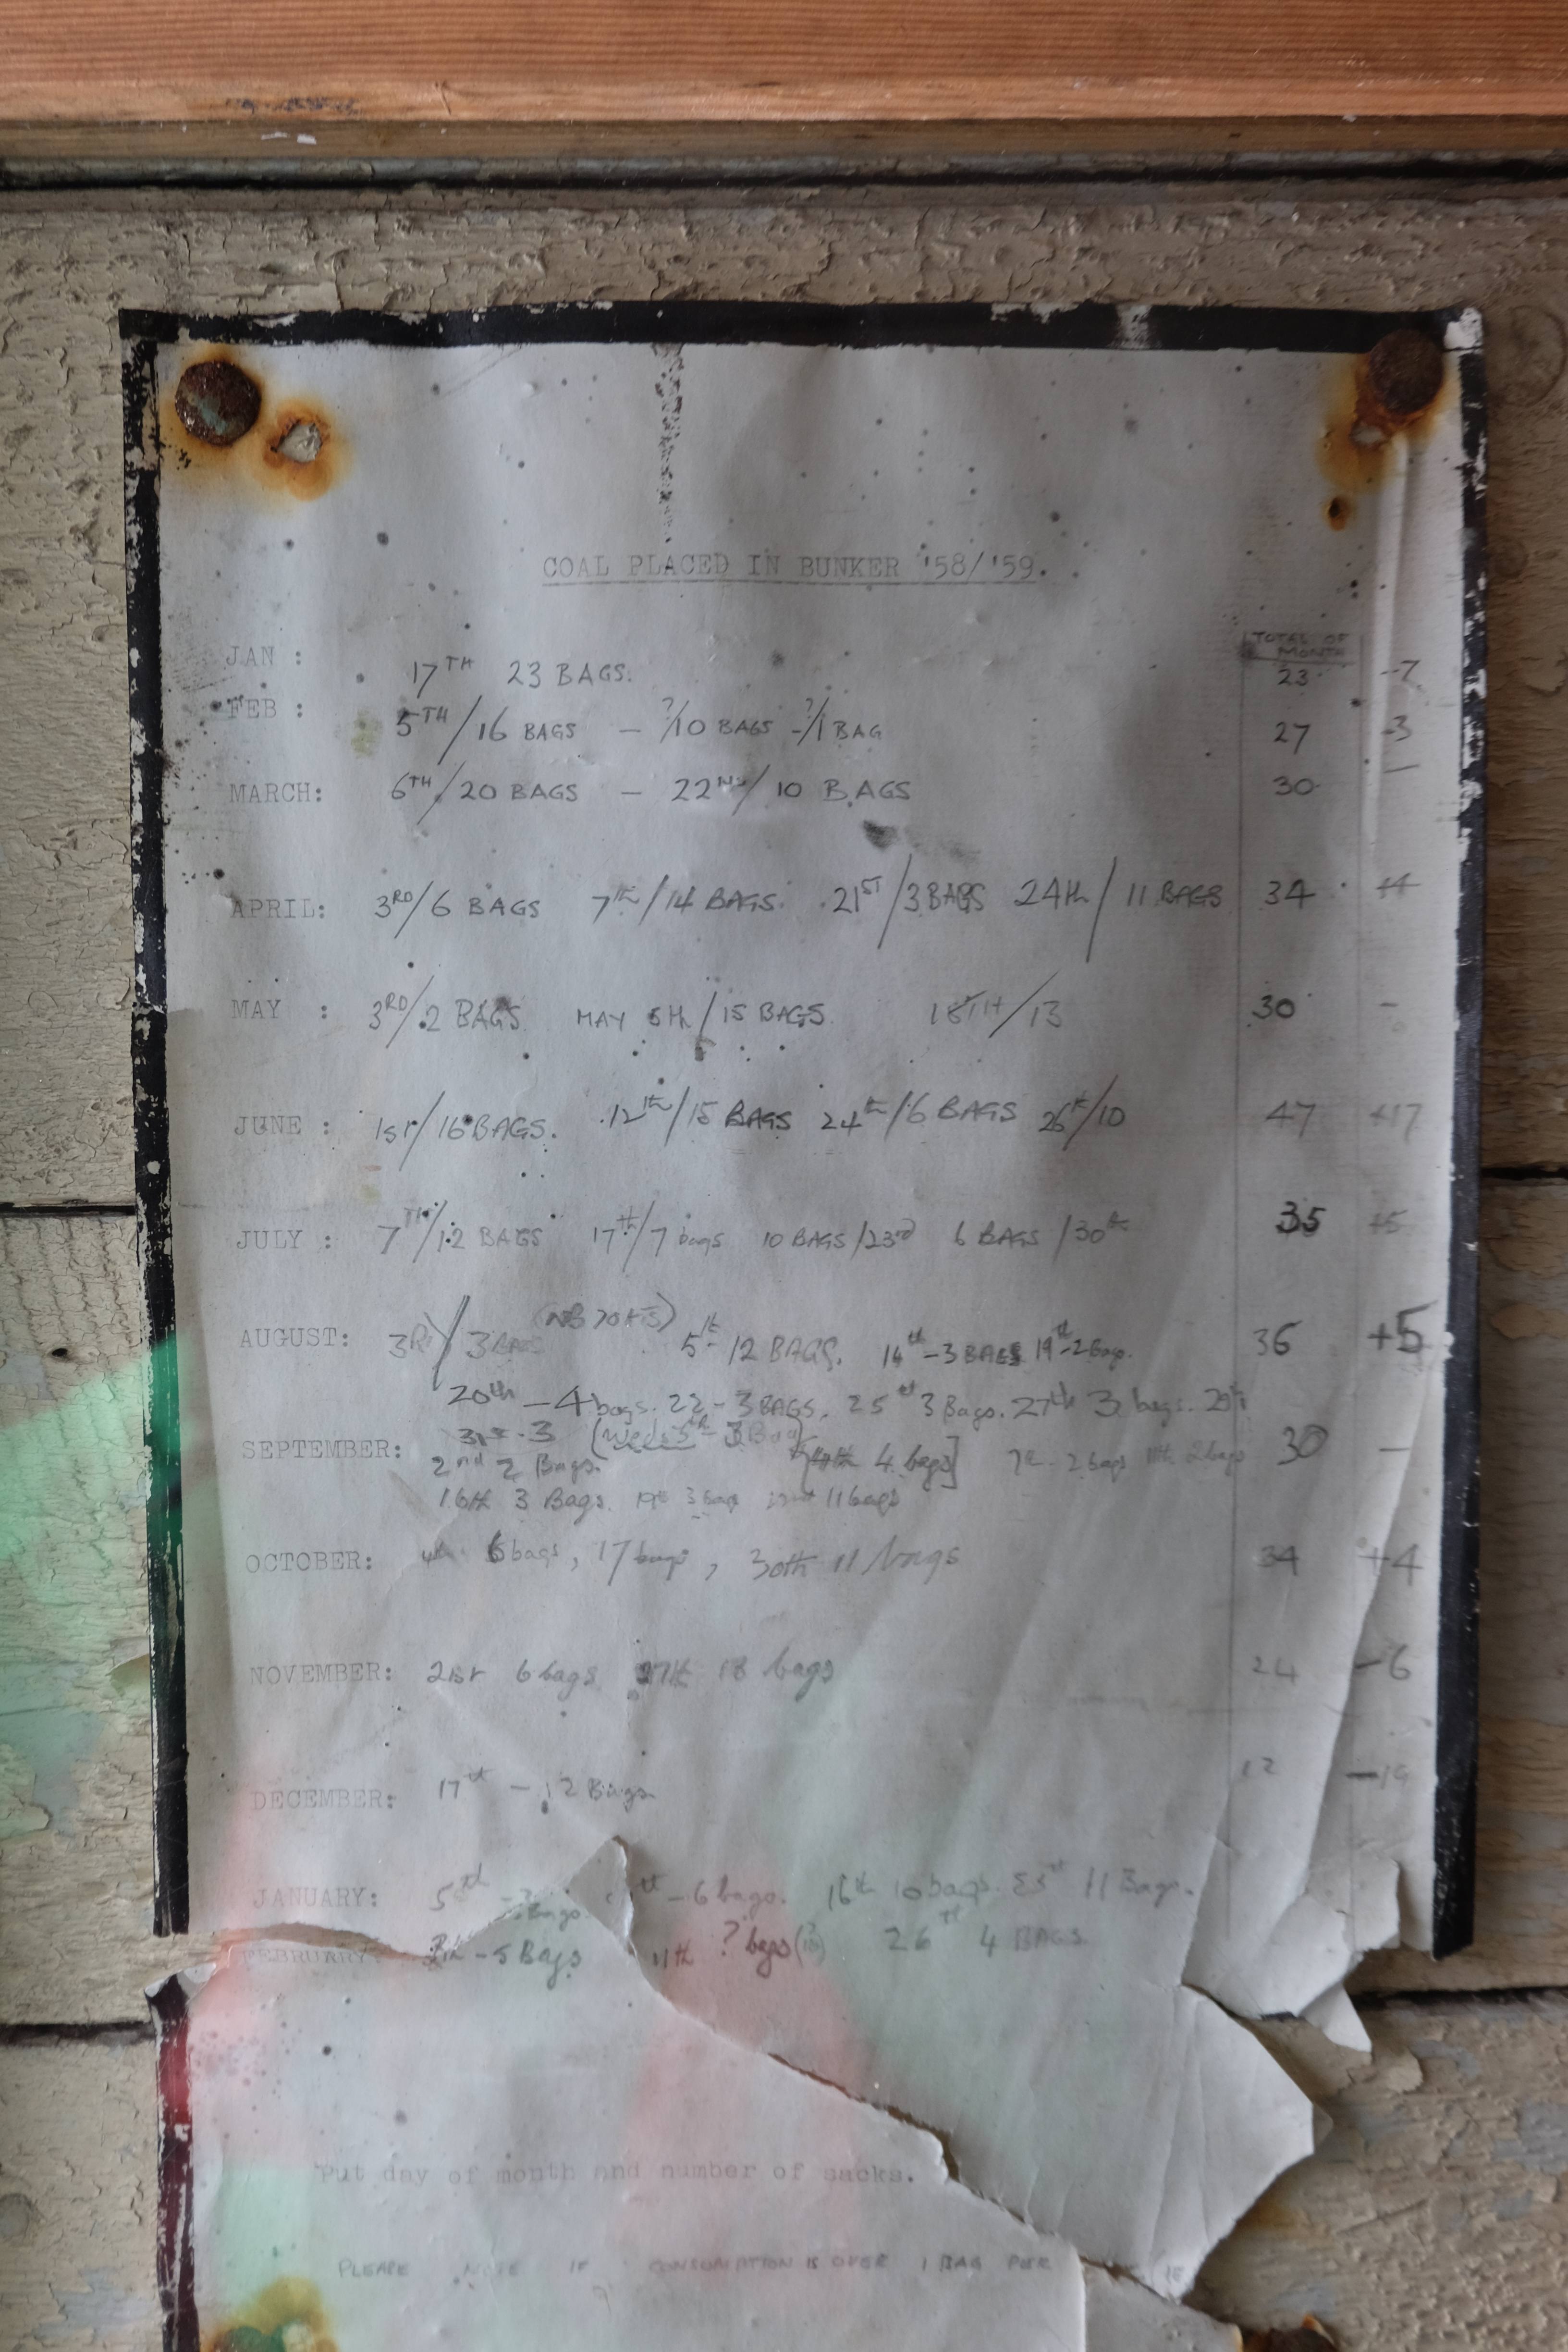 COAL PLACED IN BUNKER '58/'59.
TOTAL OF MONTH
JAN : 17TH 23 BAGS. 23 -7
FEB : 5TH/16 BAGS - ?/10 BAGS -?/1 BAG 27 -3
MARCH: 6TH/20 BAGS - 22ND/10 BAGS 30 —
APRIL: 3RD/6 BAGS 7th/14 BAGS. 21ST/3 BAGS 24th/11 BAGS 34 +4
MAY : 3RD/2 BAGS MAY 6th/15 BAGS 18TH/13 30 -
JUNE : 1ST/16 BAGS. 12th/15 BAGS 24th/6 BAGS 26th/10 47 +17
JULY : 7TH/12 BAGS 17th/7 bags 10 BAGS/23rd 6 BAGS/30th 35 +5
AUGUST: 3RD/3 BAGS 5th 12 BAGS. 14th-3 BAGS 19th-2 Bags. 36 +5
20th - 4 bags. 22 - 3 BAGS. 25th 3 Bags. 27th 3 bags. 29th
31st-3
SEPTEMBER: 2nd 2 Bags. 4 bags] 7th - 2 bags 11th 2 bags 30 -
16th 3 Bags. 19th 3 Bags 11 bags
OCTOBER: 4th 6 bags, 17 bags, 30th 11 bags 34 +4
NOVEMBER: 21st 6 bags 27th 18 bags 24 -6
DECEMBER: 17th - 12 Bags 12
JANUARY: 5th Bags - 6 bags. 16th 10 bags. 11 Bags.
FEBRUARY: 5 Bags 11th ? bags 26th 4 BAGS
Put day of month and number of sacks.
PLEASE NOTE IF CONSUMPTION IS OVER 1 BAG PER